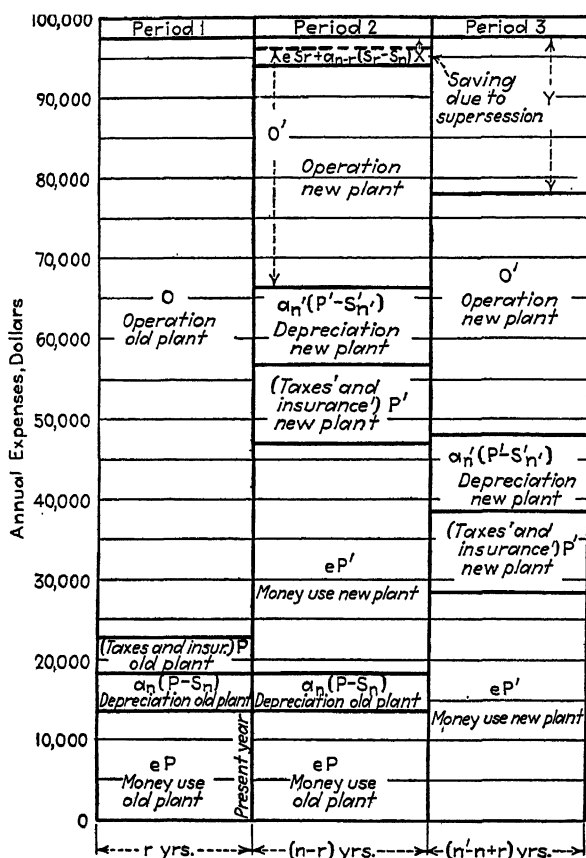 Annual Expenses, Dollars
100,000
90,000
80,000
70,000
60,000
50,000
40,000
30,000
20,000
10,000
0
Period 1
O
Operation
old plant
(Taxes and insur.) P
old plant
aₙ(P-Sₙ)
Depreciation old plant
eP
Money use
old plant
Present year
r yrs.
Period 2
eSr+aₙ₋ᵣ(Sᵣ-Sₙ) X
O'
Operation
new plant
aₙ'(P'-S'ₙ')
Depreciation
new plant
(Taxes' and
insurance') P'
new plant
eP'
Money use new plant
aₙ(P-Sₙ)
Depreciation old plant
eP
Money use
old plant
(n-r) yrs.
Period 3
Saving
due to
supersession
Y
O'
Operation
new plant
aₙ'(P'-S'ₙ')
Depreciation
new plant
(Taxes' and
insurance') P'
new plant
eP'
Money use new plant
(n'-n+r) yrs.